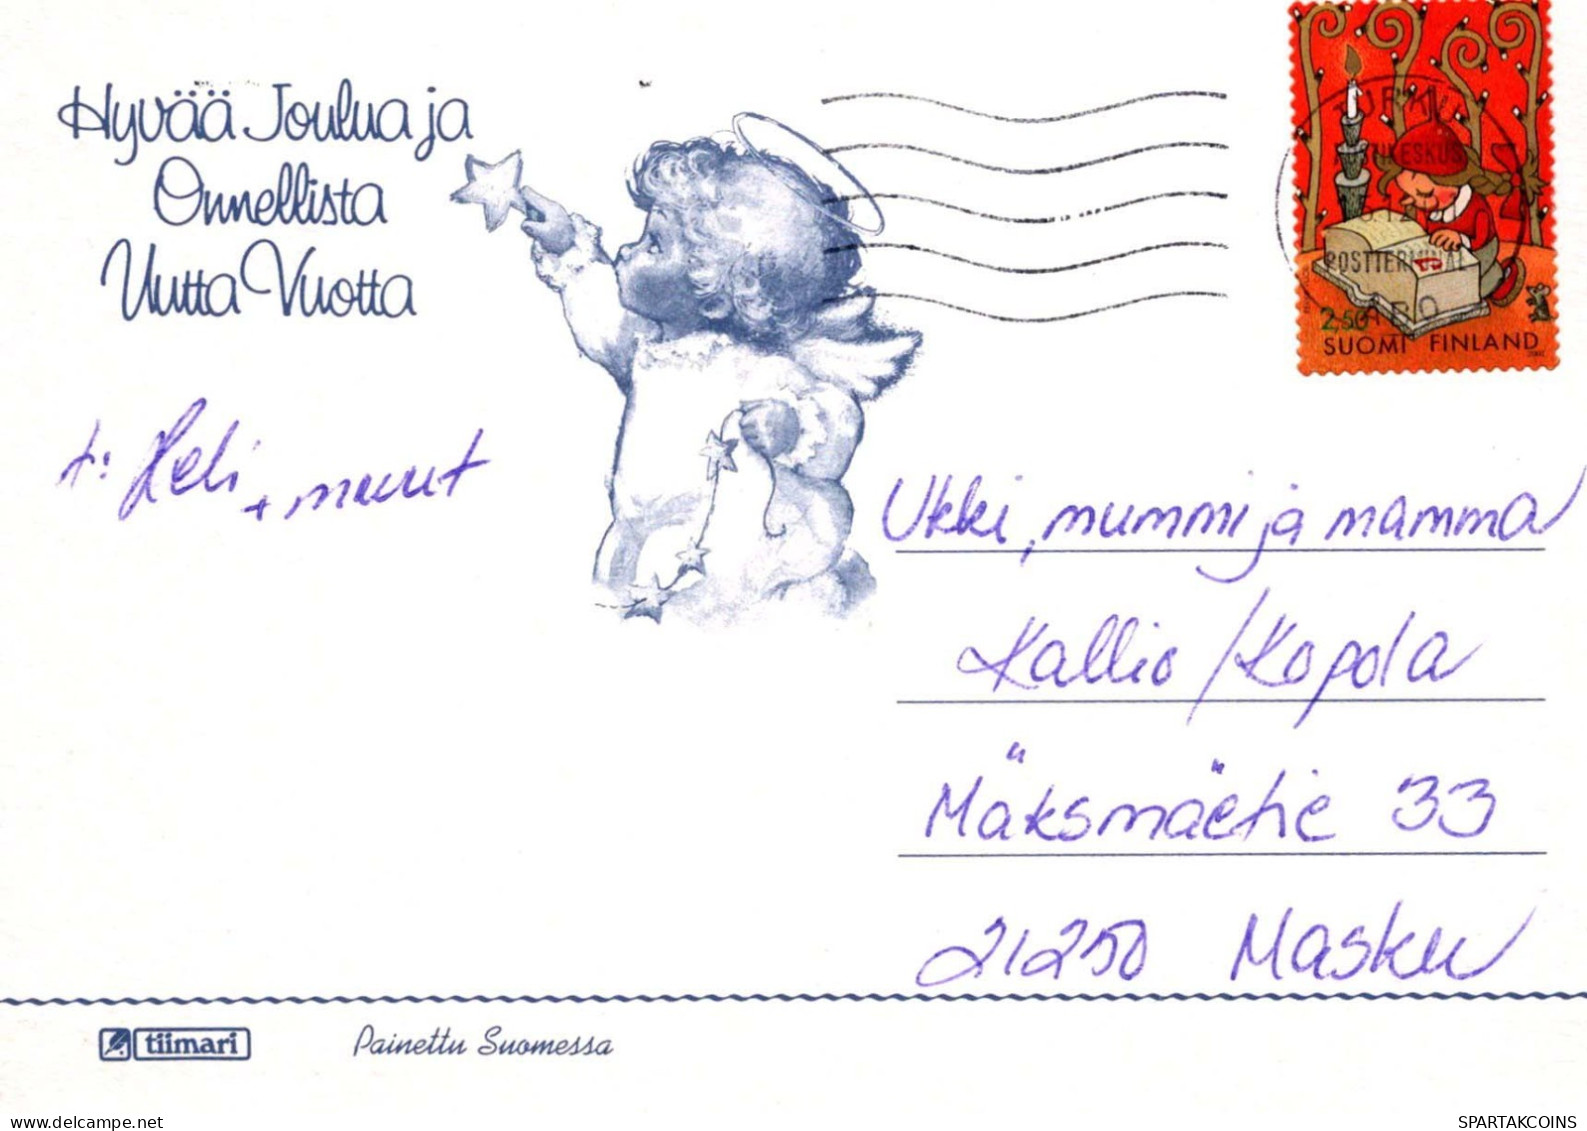 Hyvää Joulua ja
Onnellista
Uutta Vuotta
TURKU
POSTTERMINAL
ÅBO
2,50
SUOMI FINLAND
t: Heli + muut
Ukki, mummi ja mamma
Kallio/Kopola
Mäksmäetie 33
21250 Masku
tiimari
Painettu Suomessa
delcampe.net
SPARTAKCOINS